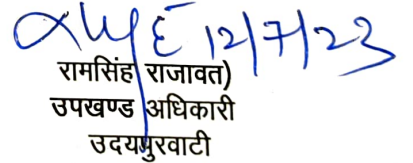 12/7/23
रामसिंह राजावत)
उपखण्ड अधिकारी
उदयपुरवाटी